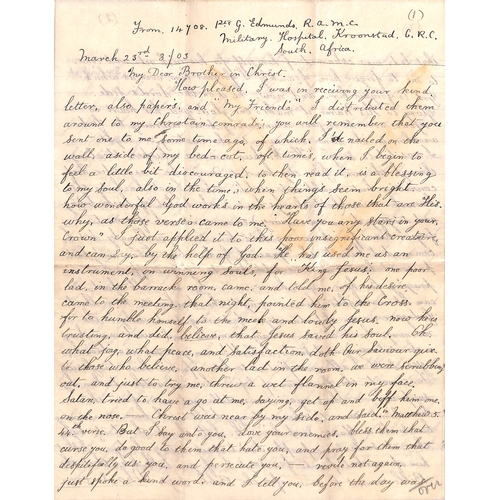 (1)
From, 14708. Pte G. Edmunds, R.A.M.C.
Military, Hospital, Kroonstad, O.R.C.
South, Africa.
March 23rd 3/03
My Dear Brother in Christ.
How pleased, I was in receiving your kind,
letter, also papers, and "My Friends" I distributed them
around to my Christain comrade; you will remember that you
sent one to me some time ago, of which, I'd nailed on the
wall, aside of my bed-cot, off time's, when I begin to
feel a little bit discouraged, to then read it, is a blessing
to my soul, also in the time, when things seem bright.
how wonderful God works in the hearts of those that are His.
why, as those verses came to me, "Have you any stars in your,
Crown" I just applied it to this poor insignificant creature,
and can say, by the help of God. He has used me as an
instrument, in winning souls, for King Jesus; one poor
lad, in the barrack room, came, and told, me, of his desire
came to the meeting, that night, pointed him to the Cross.
for to humble himself to the meek and lowly Jesus, now he is
trusting, and did, believe, that Jesus saved his soul. Oh.
what joy, what peace, and Satisfaction, doth Our Saviour give.
to those who believe, another lad in the room, we were scrubbing
out, and just to try me, threw a wet flannel in my face.
Satan, tried to have a go at me, saying, get up and biff him one,
on the nose. — Christ was near by my side, and said, "Matthew 5.
44th verse. But I say unto you, love your enemies, bless them that
curse you, do good to them that hate you, and pray for them that
despitefully us you, and persecute you, — revile not again,
just spoke a kind word, and I tell you, before the day was